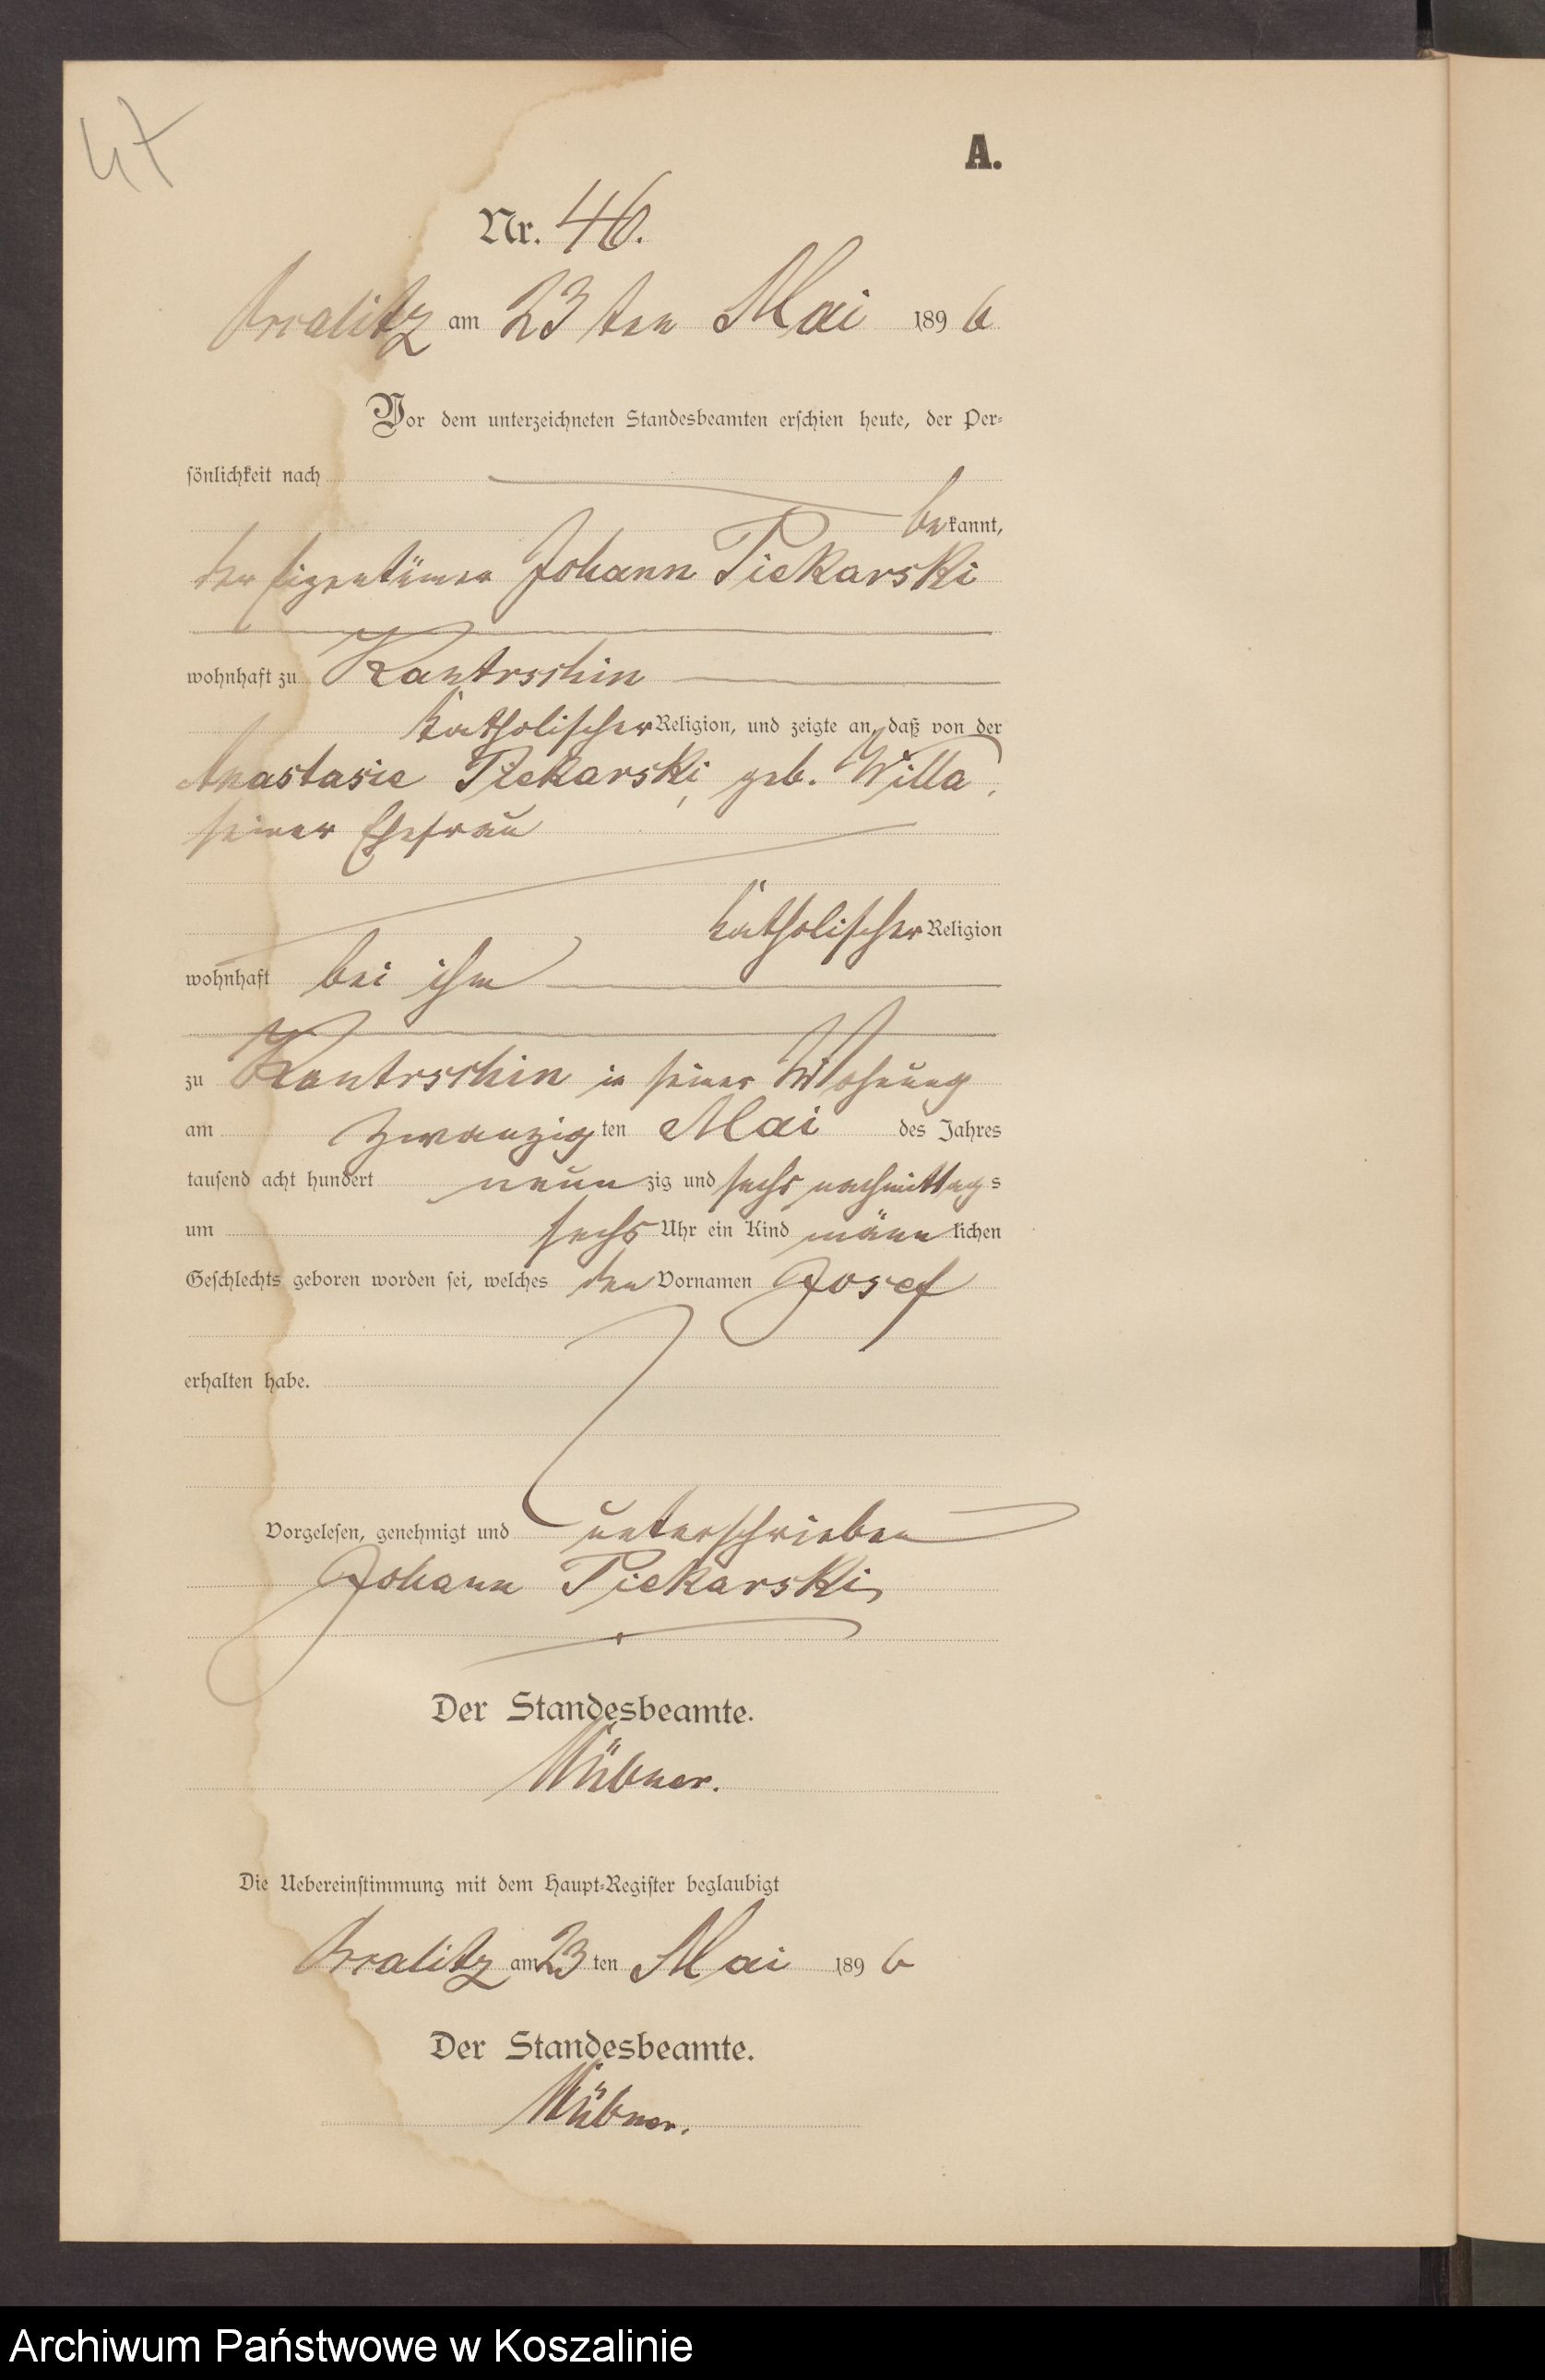 47
A.
Nr. 46.
am 23 ten Mai 1896
Vor dem unterzeichneten Standesbeamten erschien heute, der Per-
sönlichkeit nach
bekannt,
der Eigentümer Johann Piekarski
wohnhaft zu Kantrschin
katholischer Religion, und zeigte an, daß von der
Anastasie Piekarski, geb. Willa,
seiner Ehefrau
katholischer Religion
wohnhaft bei ihm
zu Kantrschin in seiner Wohnung
am zwanzigten Mai des Jahres
tausend acht hundert neunzig und sechs nachmittags
um sechs Uhr ein Kind männlichen
Geschlechts geboren worden sei, welches den Vornamen Josef
erhalten habe.
Vorgelesen, genehmigt und unterschrieben
Johann Piekarski
Der Standesbeamte.
Die Uebereinstimmung mit dem Haupt-Register beglaubigt
am 23 ten Mai 1896
Der Standesbeamte.
Archiwum Państwowe w Koszalinie